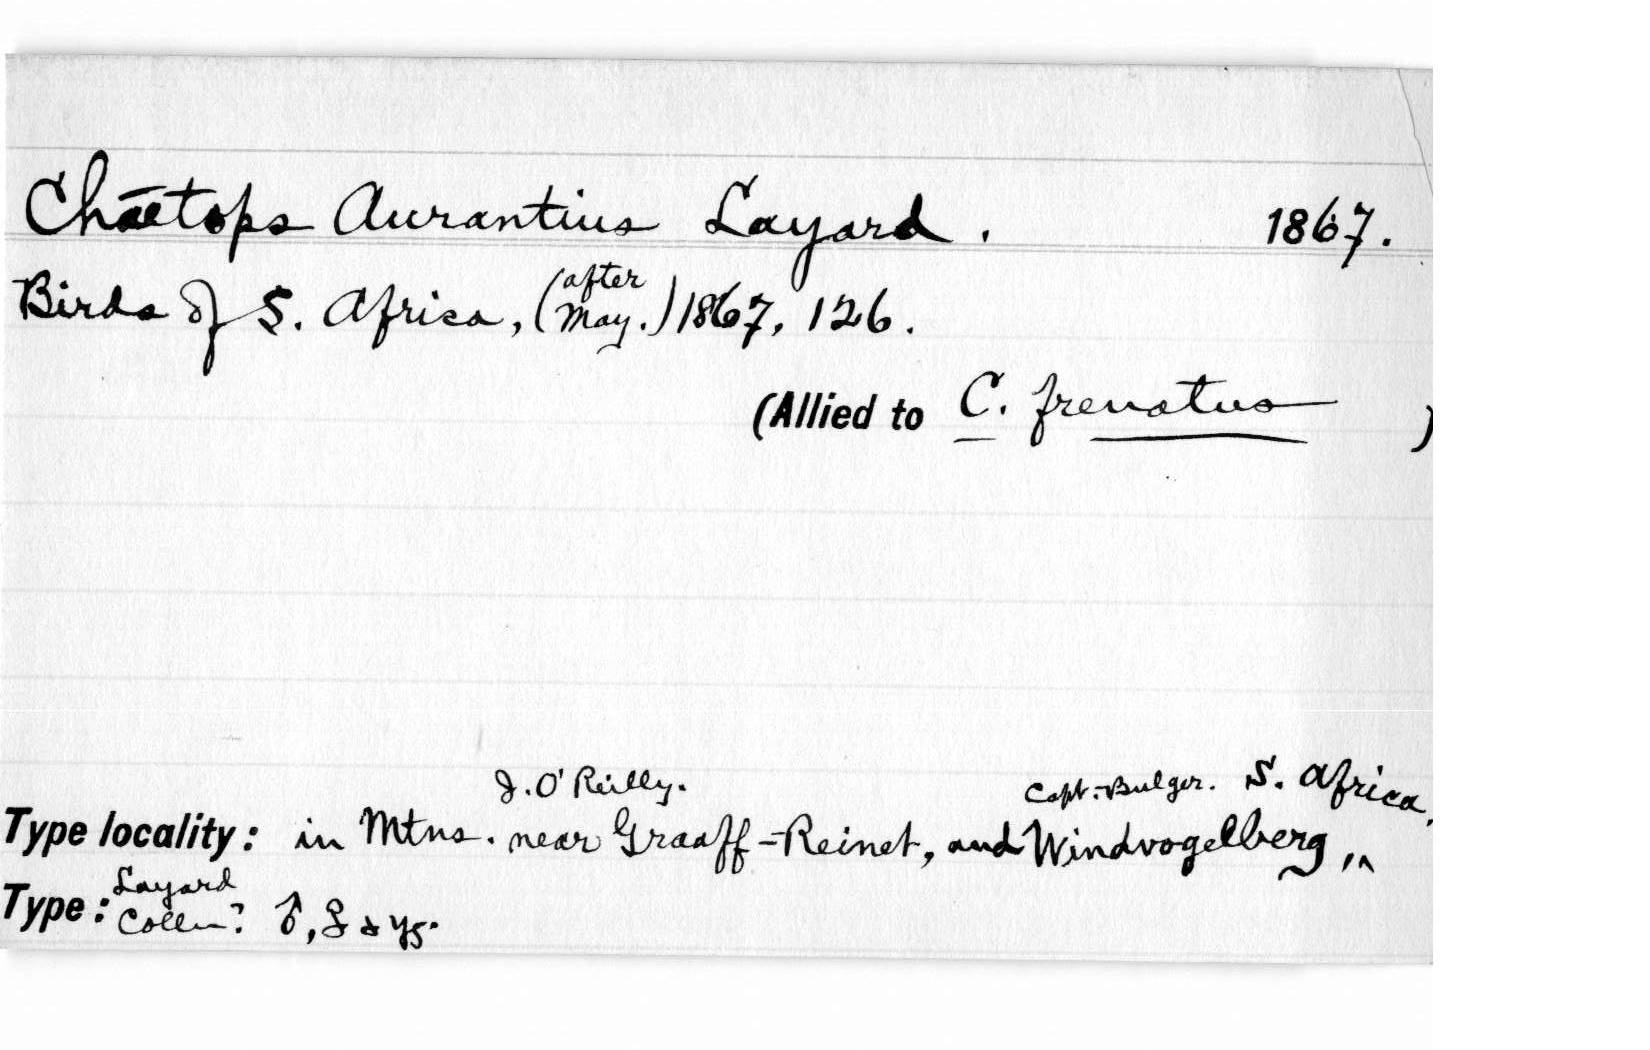 Chaetops Aurantius Layard. 1867.
Birds of S. Africa, (after May.) 1867, 126.
(Allied to C. frenatus )
J. O'Reilly. Capt. Bulger. S. Africa,
Type locality: in Mtns. near Graaff-Reinet, and Windvogelberg,^
Type: Layard Colln? ♂, ♀ & yg.